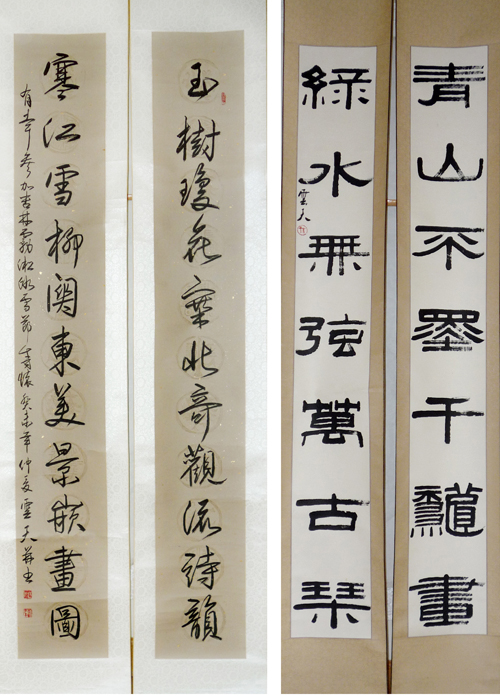 青山不墨千龝畫
綠水無弦萬古琴
雲天
玉樹瓊花塞北奇觀流詩韻
寒江雪柳関東美景嵌畫圖
有幸參加吉林霧淞冰雪節懷癸未年仲夏雲天并书